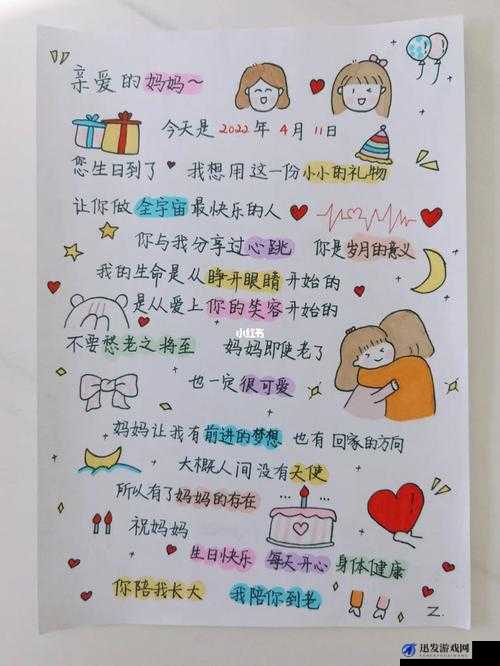 亲爱的妈妈~
今天是 2022 年 4 月 11 日
您生日到了 我想用这一份小小的礼物
让你做 全宇宙 最快乐的人
你与我分享过心跳 你是岁月的意义
我的生命是从 睁开眼睛 开始的
是从爱上你的笑容开始的
小红书
不要愁老之将至 妈妈即使老了
也一定很可爱
妈妈让我有前进的梦想 也有回家的方向
大概人间没有天使
所以有了妈妈的存在
祝妈妈
生日快乐 每天开心 身体健康
你陪我长大 我陪你到老
Z.
迅发游戏网